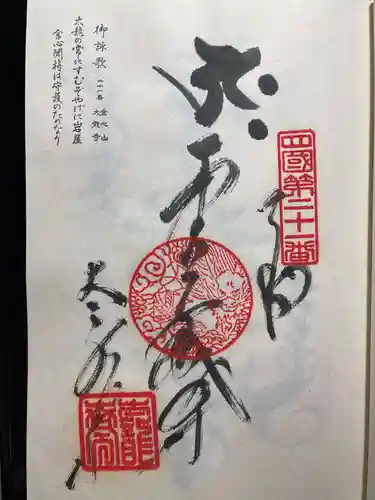 四国第二十一番
奉納
虚空蔵尊
太龍寺
御詠歌 二十一番 舎心山 太龍寺
太龍の常にすむぞやげに岩屋
舎心聞持は守護のためなり